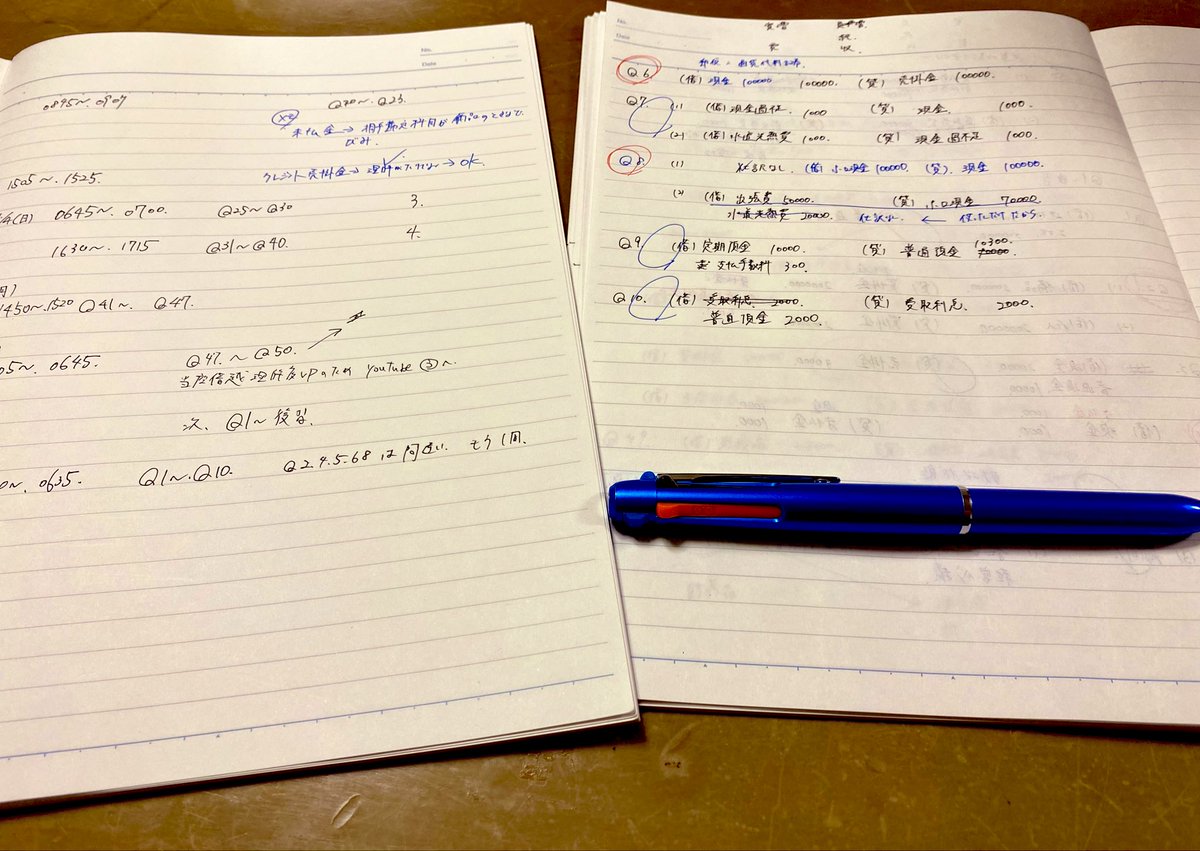 No.
Date
0845〜.0907
Q20〜.Q23.
未仏金→相手勘定科目が商品のときで
のみ.
クレジット売掛金→理解できてない→OK.
1505〜.1525.
(日) 0645〜 0700. Q25〜Q30 3.
1630〜.1715 Q31〜Q40. 4.
1450〜.1520 Q41〜. Q47.
05〜.0645. Q47.〜Q50.
当座借越理解度UPのため YouTube ③〜.
次. Q1〜復習.
0〜.0635. Q1〜.Q10. Q2.4.5.68は間違い. もう1周.
No.
Date
資 負
費 収
Q6 (借) 現金 100000. (貸) 売掛金 100000.
Q7 (1) (借)現金過不足 1000 (貸) 現金 1000.
(2) (借)水道光熱費 1000. (貸) 現金過不足 1000.
Q8 (1) 仕訳なし. (借) 小口現金 100000. (貸). 現金 100000.
(2) (借) 交通費 50000. (貸) 小口現金 70000.
水道光熱費 20000. 仕訳なし. ← 使っただけだから.
Q9 (借) 定期預金 10000. (貸) 普通預金 10300.
支払手数料 300.
Q10. (借) 受取利息 2000. (貸) 受取利息. 2000.
普通預金 2000.